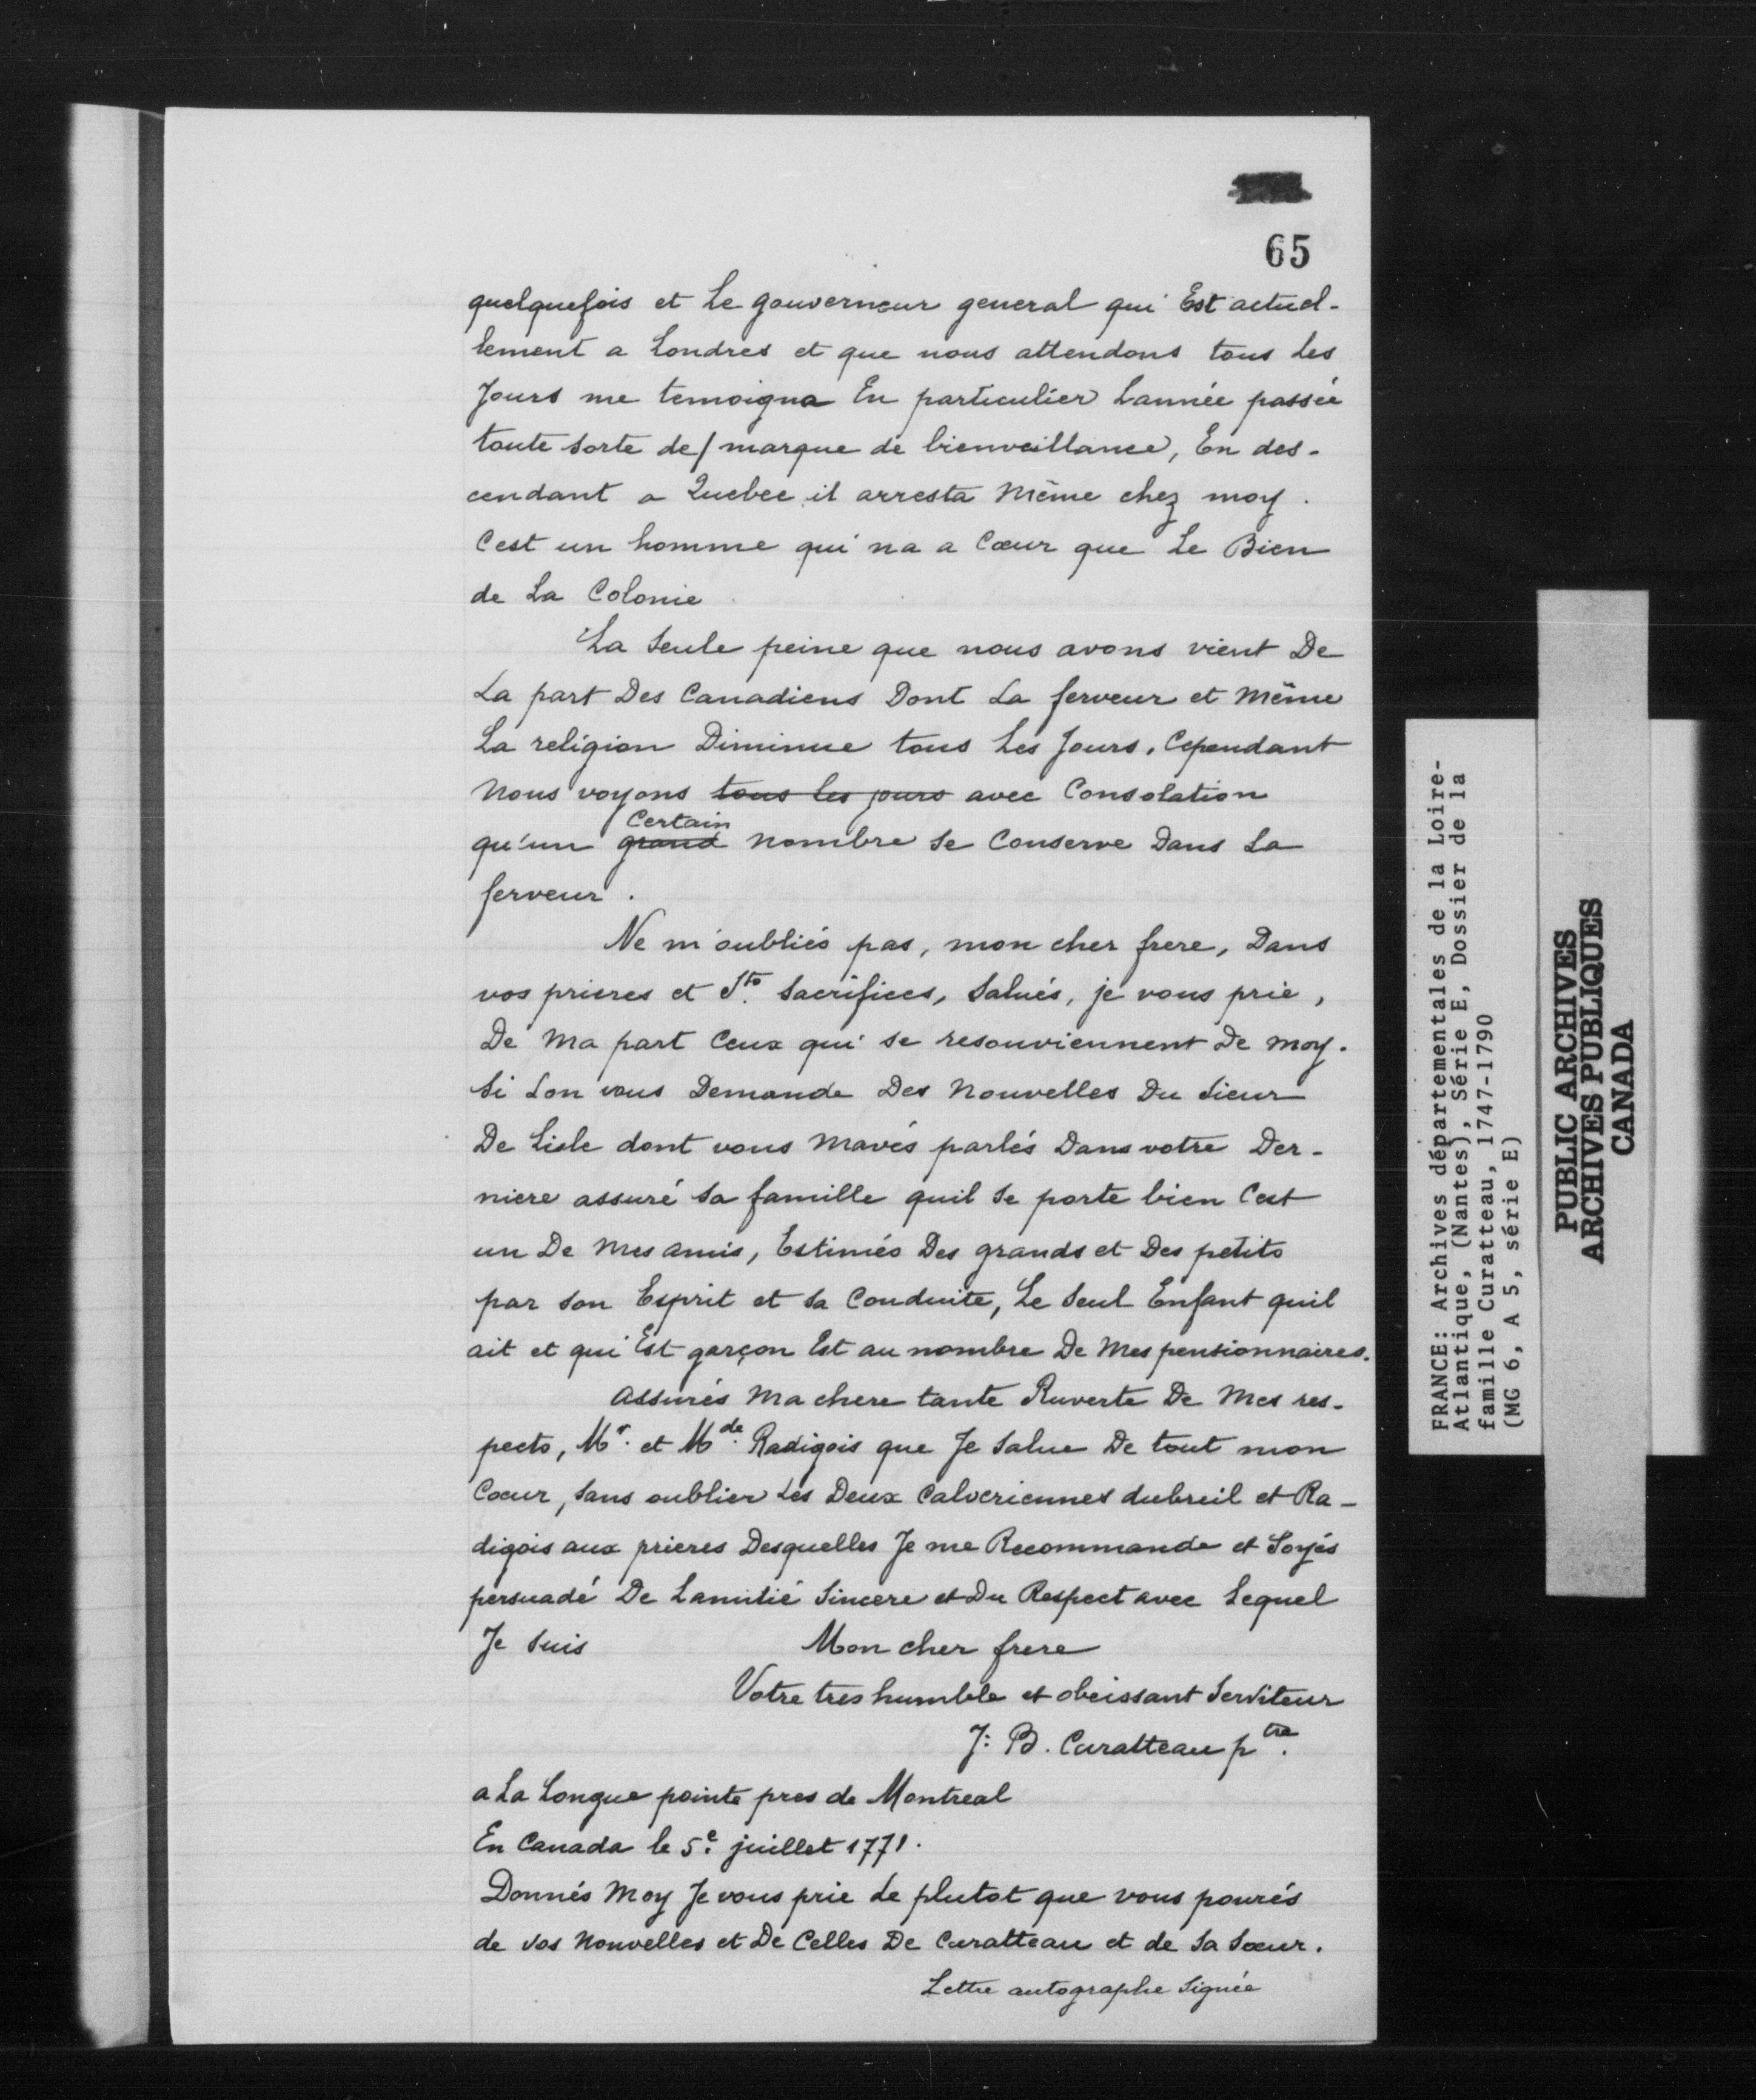 65
quelquefois et Le gouverneur general qui Est actuel-
lement a Londres et que nous attendons tous Les
Jours me temoigna En particulier L'année passée
toute sorte de/ marque de bienveillance, En des-
cendant a Quebec il arresta Même chez moy.
C'est un homme qui na a Cœur que Le Bien
de La Colonie
La Seule peine que nous avons vient De
La part Des Canadiens Dont La ferveur et Même
La religion Diminue tous Les Jours. Cependant
Nous voyons tous les jours avec Consolation
Certain
qu'un grand nombre se Conserve Dans La
ferveur.
Ne m'oubliés pas, mon cher frere, Dans
vos prieres et Sts. Sacrifices, Salués, je vous prie,
De Ma part Ceux qui se resouviennent De moy.
Si Lon vous Demande Des Nouvelles Du Sieur
De Lisle dont vous Mavés parlés Dans votre Der-
niere assuré sa famille quil se porte bien Cest
un De Mes amis, Estimés Des grands et Des petits
par son Esprit et sa Conduite, Le Seul Enfant quil
ait et qui Est garçon Est au nombre De Mes pensionnaires.
Assurés Ma chere tante Ruverte De Mes res-
pects, Mr. et Mde. Radigois que Je Salue De tout mon
Cœur, Sans oublier Les Deux Calveriennes dubreil et Ra-
digois aux prieres Desquelles Je me Recommande et Soyés
persuadé De Lamitié Sincere et Du Respect avec Lequel
Je Suis Mon cher frere
Votre tres humble et obeissant Serviteur
J: B. Curatteau ptre.
a La Longue pointe pres de Montreal
En Canada le 5e. juillet 1771.
Donnés Moy Je vous prie Le plutot que vous pourés
de vos Nouvelles et De Celles De Curatteau et de Sa Sœur.
Lettre autographe Signée
FRANCE: Archives départementales de la Loire-
Atlantique, (Nantes), Série E, Dossier de la
famille Curatteau, 1747-1790
(MG 6, A 5, série E)
PUBLIC ARCHIVES
ARCHIVES PUBLIQUES
CANADA